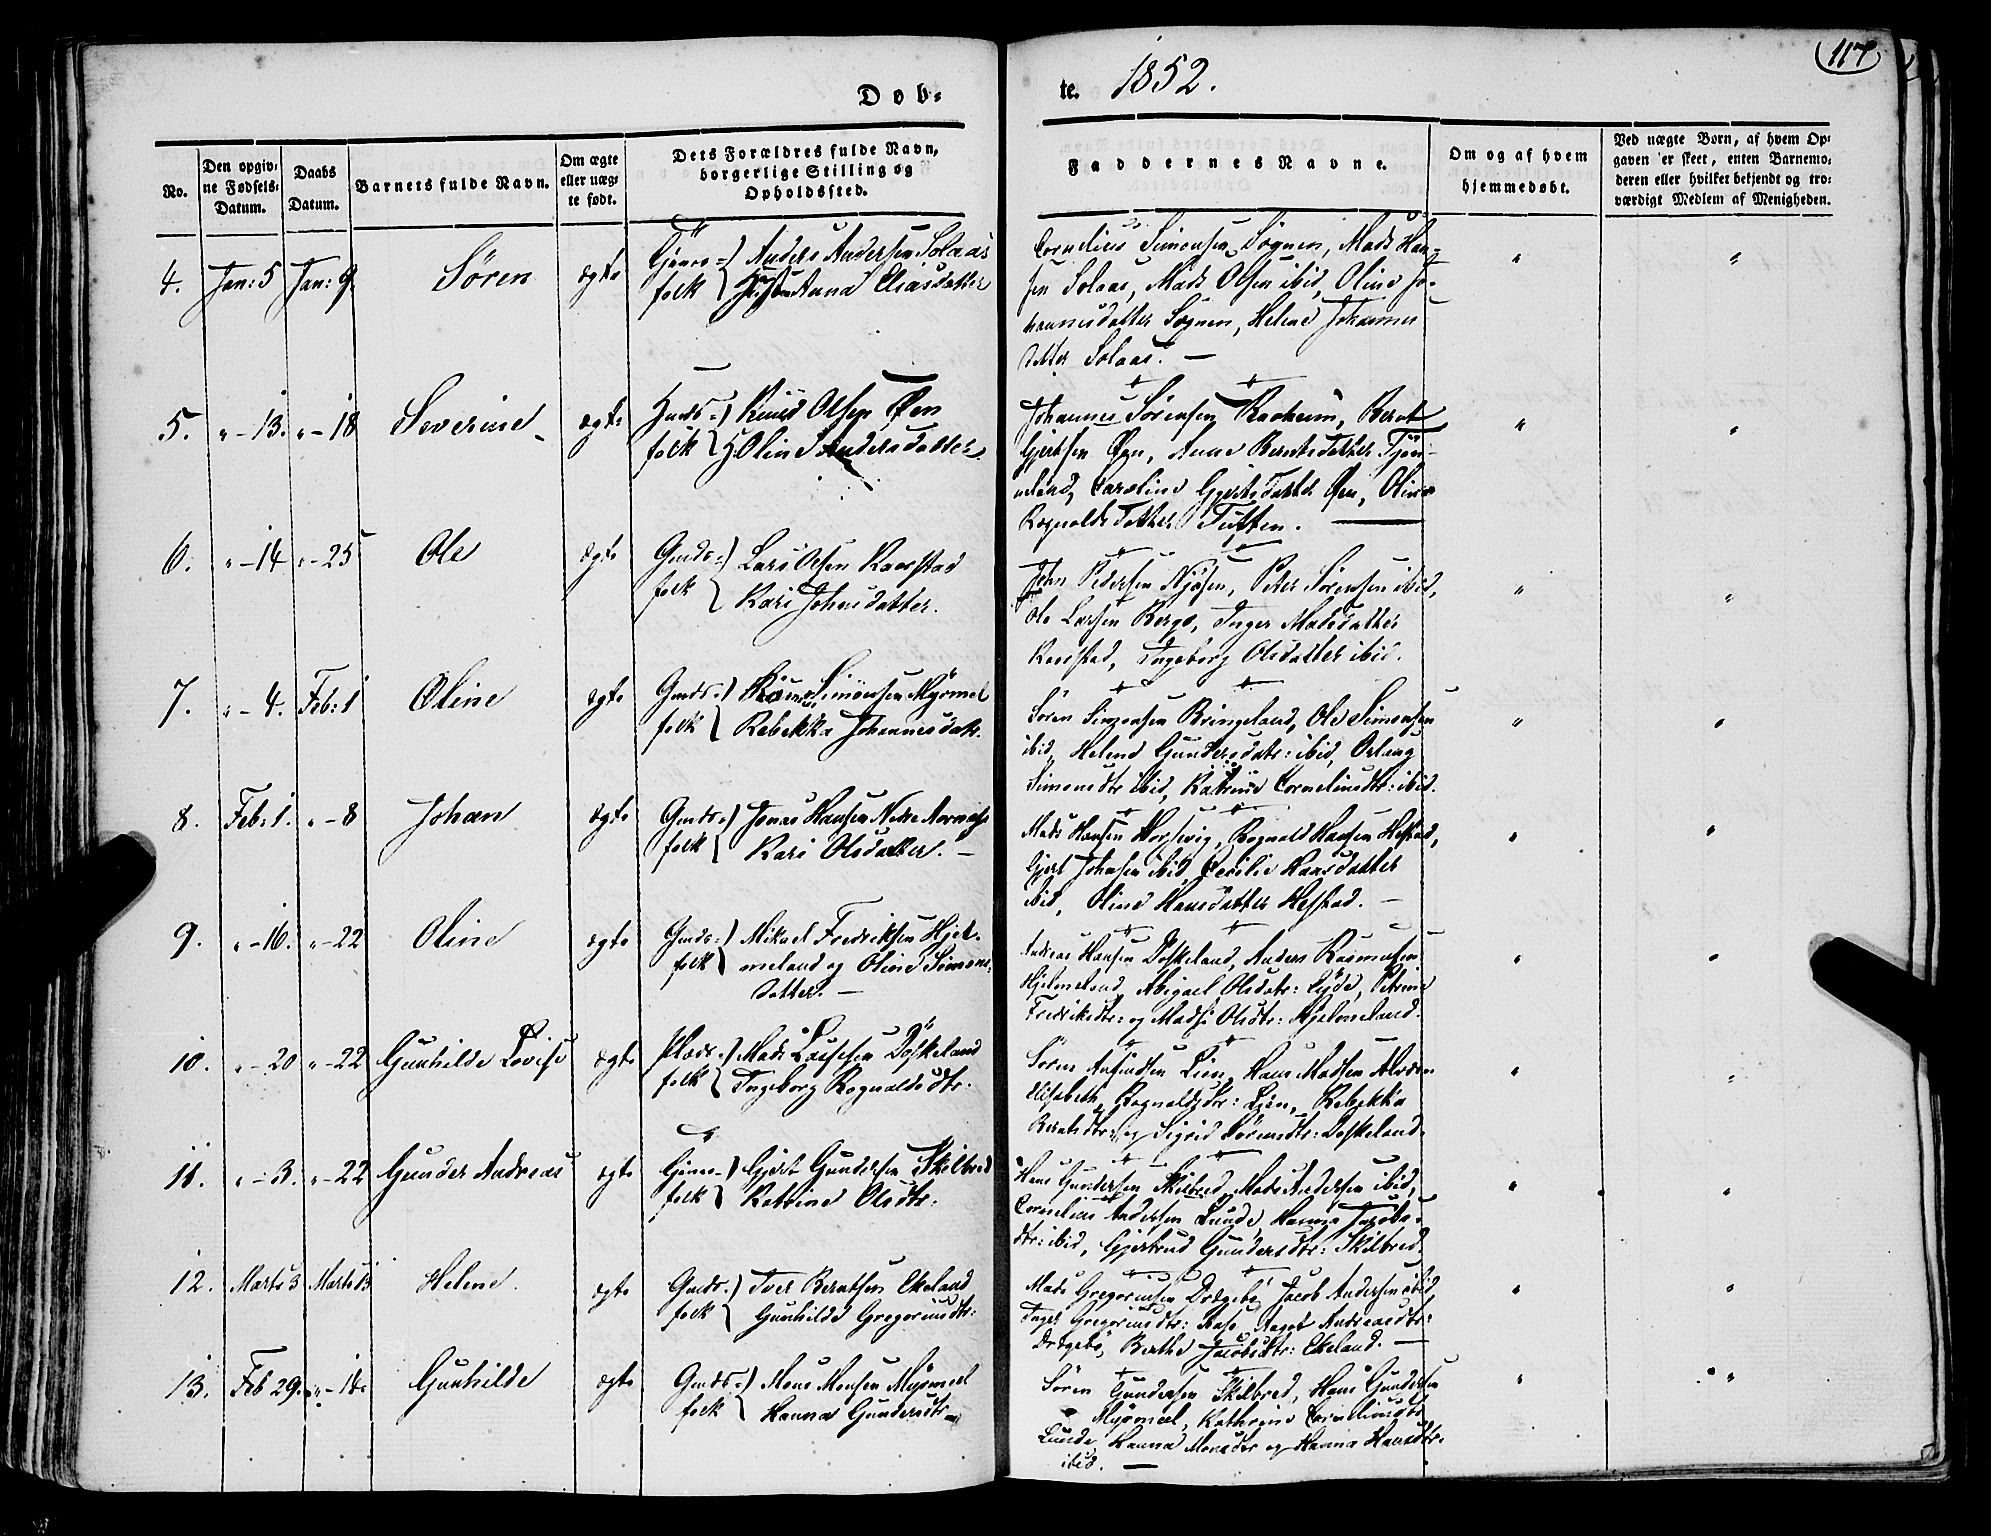 117
Døb-
te. 1852.
No.
Den opgiv-
ne Fødsels-
Datum.
Daabs
Datum.
Barnets fulde Navn.
Om ægte
eller uæg-
te født.
Dets Forældres fulde Navn,
borgerlige Stilling og
Opholdssted.
Faddernes Navne.
Om og af hvem
hjemmedøbt.
Ved uægte Børn, af hvem Op-
gaven er skeet, enten Barnemo-
deren eller hvilket bekjendt og tro-
værdigt Medlem af Menigheden.
4. Jan: 5 Jan: 9 Søren ægte
Anders Andersen Solaas
folk Anna Eliasdatter
Cornelius Simonsen Sognen, Mads Han-
sen Solaas, Mads Olsen ibid, Oline Jo-
hannesdatter Sognen, Helene Johannes
datter Solaas. —
" "
5. " - 13. " - 18 Severine ægte
Knud Olsen Øen
folk Oline Andersdatter.
Johannes Sørensen Rørheim, Bernt
Gjertsen Øen, Anne Berntsdatter
Caroline Gjertsdatter Øen, Oline
Rognaldsdatter Tuften. —
" "
6. " - 14 " - 25 Ole ægte
Gmds- Lars Olsen Raastad
folk Kari Johnsdatter.
John Pedersen Njøsen, Peter Sørensen ibid,
Ole Larsen Berge, Inger Madsdatter
Raastad, Ingeborg Olsdatter ibid.
" "
7. " - 4. Feb: 1 Oline ægte
Gmds- Simonsen Myrmel
folk Rebekka Johannesdatr.
Søren Simonsen Bringeland, Ole Simonsen
ibid, Helene Gundersdatr: ibid,
Simonsdtr ibid, Katrine Corneliusdtr: ibid.
" "
8. Feb: 1. " - 8 Johan ægte
Gmds- Jonas Hansen Nedre
folk Kari Olsdatter. —
Mads Hansen Horsevig, Rognald Hansen Hestad,
Gjert Johnsen ibid, Cecilie Hansdatter
ibid, Oline Hansdatter Hestad. —
" "
9. " - 16. " - 22 Oline ægte
Gmds- Mikael Fredriksen Hjel-
folk meland og Oline Simons-
datter. —
Andreas Hansen Døskeland, Anders Rasmussen
Hjelmeland, Abigael Olsdatr:
Fredriksdtr: og Madsi Olsdtr: Hjelmeland.
" "
10. " - 20 " - 22 Gunhilde Lovise ægte
Plads- Mads Lassesen Døskeland
folk Ingeborg Rognaldsdtr.
Søren Lien, Hans Madsen
Elisabeth Rognaldsdtr: Lien, Rebekka
Berntsdtr: og Sigrid Sørensdtr: Døskeland.
" "
11. " - 3. " - 22 Gunder Andreas ægte
Gjert Gundersen Skilbred
folk Katrine Olsdtr.
Hans Gundersen Skilbred, Mads Andersen ibid,
Cornelius Andersen Lunde, Hanna Jacobs-
dtr: ibid, Gjertrud Gundersdtr: Skilbred.
" "
12. Marts 3 Marts 13 Helene ægte
Gmds- Iver Berntsen Ekeland
folk Gunhilde Gregoriusdtr:
Mads Gregoriussen Drægebø, Jacob Andersen ibid,
Inger Gregoriusdtr: Aase, Andreasdtr:
Drægebø, Berthe Jacobsdtr: Ekeland. —
" "
13. Feb 29. " - 14. Gunhilde ægte
Gmds- Mons Monsen Myrmel
folk Hanna Gundersdtr
Søren Gundersen Skilbred, Hans Gundersen
Myrmel, Kathrine Corneliusdtr
Lunde, Hanna Monsdtr og Hanna Hansdtr:
ibid. —
" "